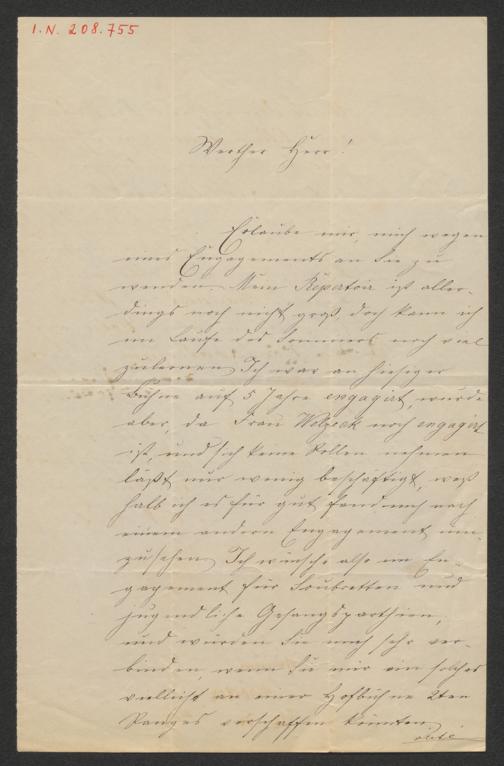 I.N. 208.755
Werther Herr!
Erlaube mir, mich wegen
eines Engagements an Sie zu
wenden. Mein Repertoir ist aller-
dings noch nicht groß, doch kann ich
im Laufe des Sommers noch viel
zulernen. Ich war an hiesiger
Bühne auf 5 Jahre engagirt, wurde
aber, da Frau Welzeck noch engagirt
ist, und sich keine Rollen nehmen
läßt nur wenig beschäftigt, weß
halb ich es für gut fand mich nach
einem andern Engagement um-
zusehen. Ich wünsche also ein En-
gagement für Soubretten und
jugendliche Gesangsparthien,
und würden Sie mich sehr ver-
binden, wenn Sie mir ein solches
vielleicht an einer Hofbühne 2ten
Ranges verschaffen könnten.